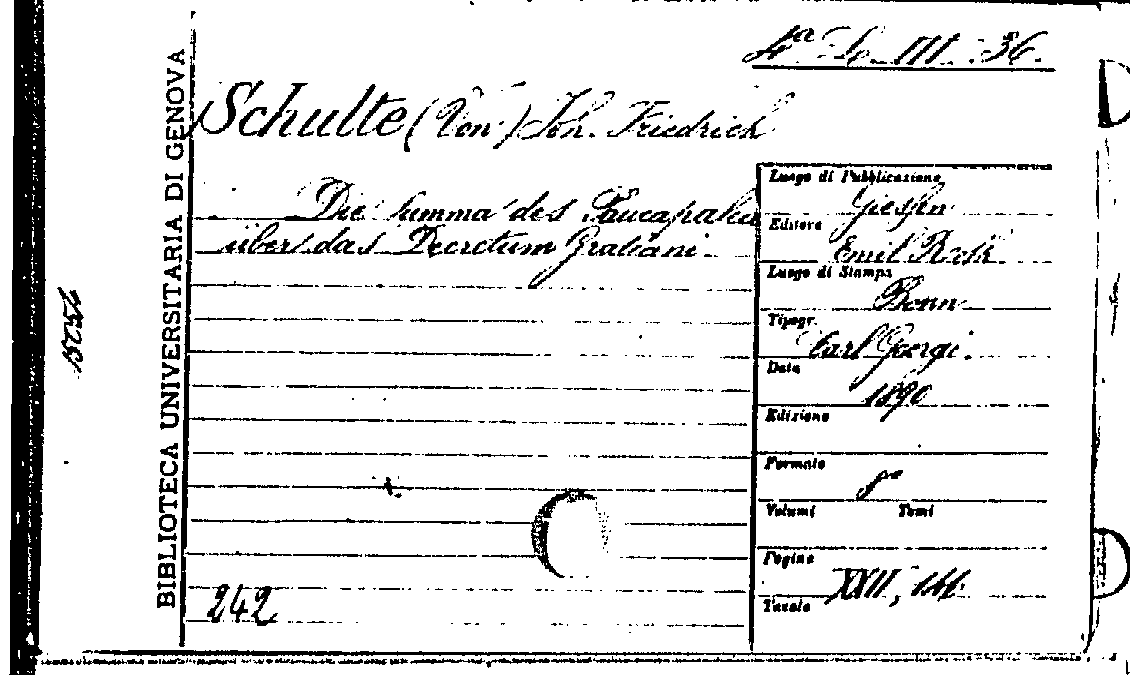 4ª L. III. 36.
Schulte (Von) Joh. Friedrich
Die Summa des Paucapalea
über das Decretum Gratiani.
BIBLIOTECA UNIVERSITARIA DI GENOVA
242
Luogo di Pubblicazione
Giessen
Editore
Emil Roth
Luogo di Stampa
Bonn
Tipogr.
Carl Georgi.
Data
1890
Edizione
Formato
8º
Volumi Tomi
Pagine
XXII,
Tavole